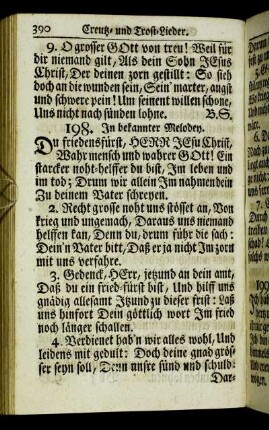 390 Creutz- und Trost-Lieder.
9. O grosser GOtt von treu! Weil für
dir niemand gilt, Als dein Sohn JEsus
Christ, Der deinen zorn gestillt: So sieh
doch an die wunden sein, Sein' marter, angst
und schwere pein! Um seinent willen schone,
Uns nicht nach sünden lohne. B.S.
198. In bekannter Melodey.
DU friedensfürst, HERR JEsu Christ,
Wahr mensch und wahrer GOtt! Ein
starcker noht-helffer du bist, Im leben und
im tod; Drum wir allein Im nahmen dein
Zu deinem Vater schreyen.
2. Recht grosse noht uns stösset an, Von
krieg und ungemach, Daraus uns niemand
helffen kan, Denn du, drum führ die sach:
Dein'n Vater bitt, Daß er ja nicht Im zorn
mit uns verfahre.
3. Gedenck, HErr, jetzund an dein amt,
Daß du ein fried-fürst bist, Und hilff uns
gnädig allesamt Jtzund zu dieser frist: Laß
uns hinfort Dein göttlich wort Im fried
noch länger schallen.
4. Verdienet hab'n wir alles wohl, Und
leidens mit gedult: Doch deine gnad grös-
ser seyn soll, Denn unsre sünd und schuld:
Dar-